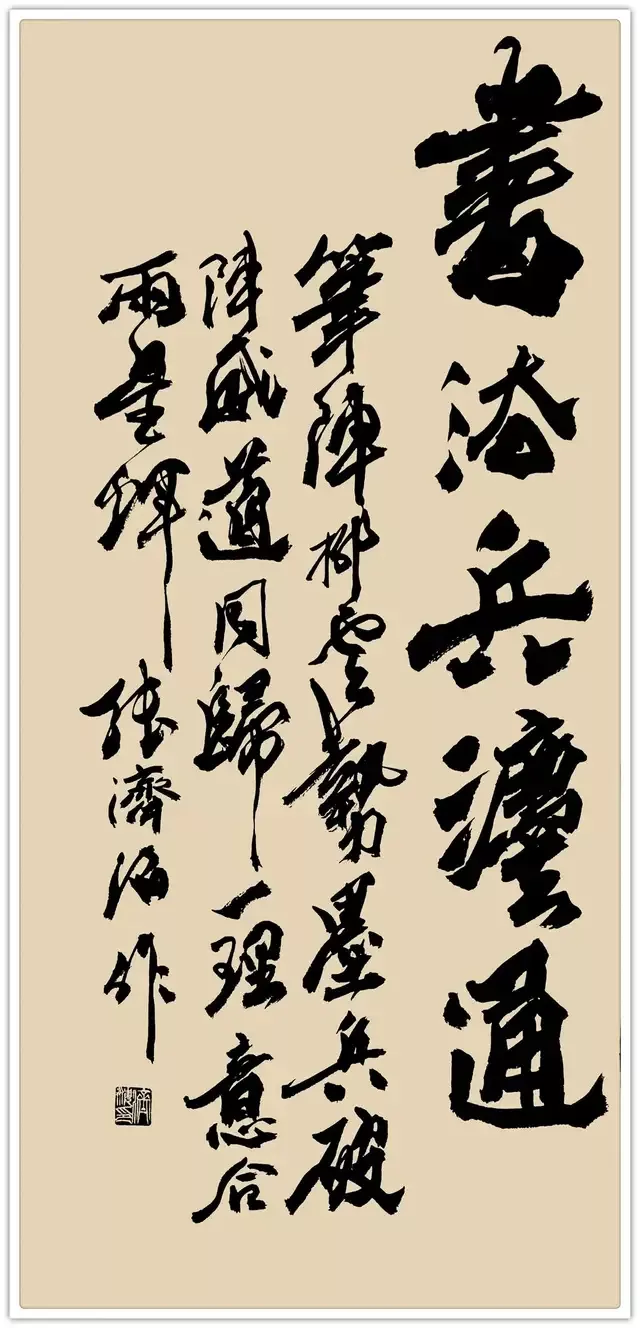 書法兵灋通
筆陣排雲勢墨兵破
陣威道同歸一理意合
兩星輝
張濟海作